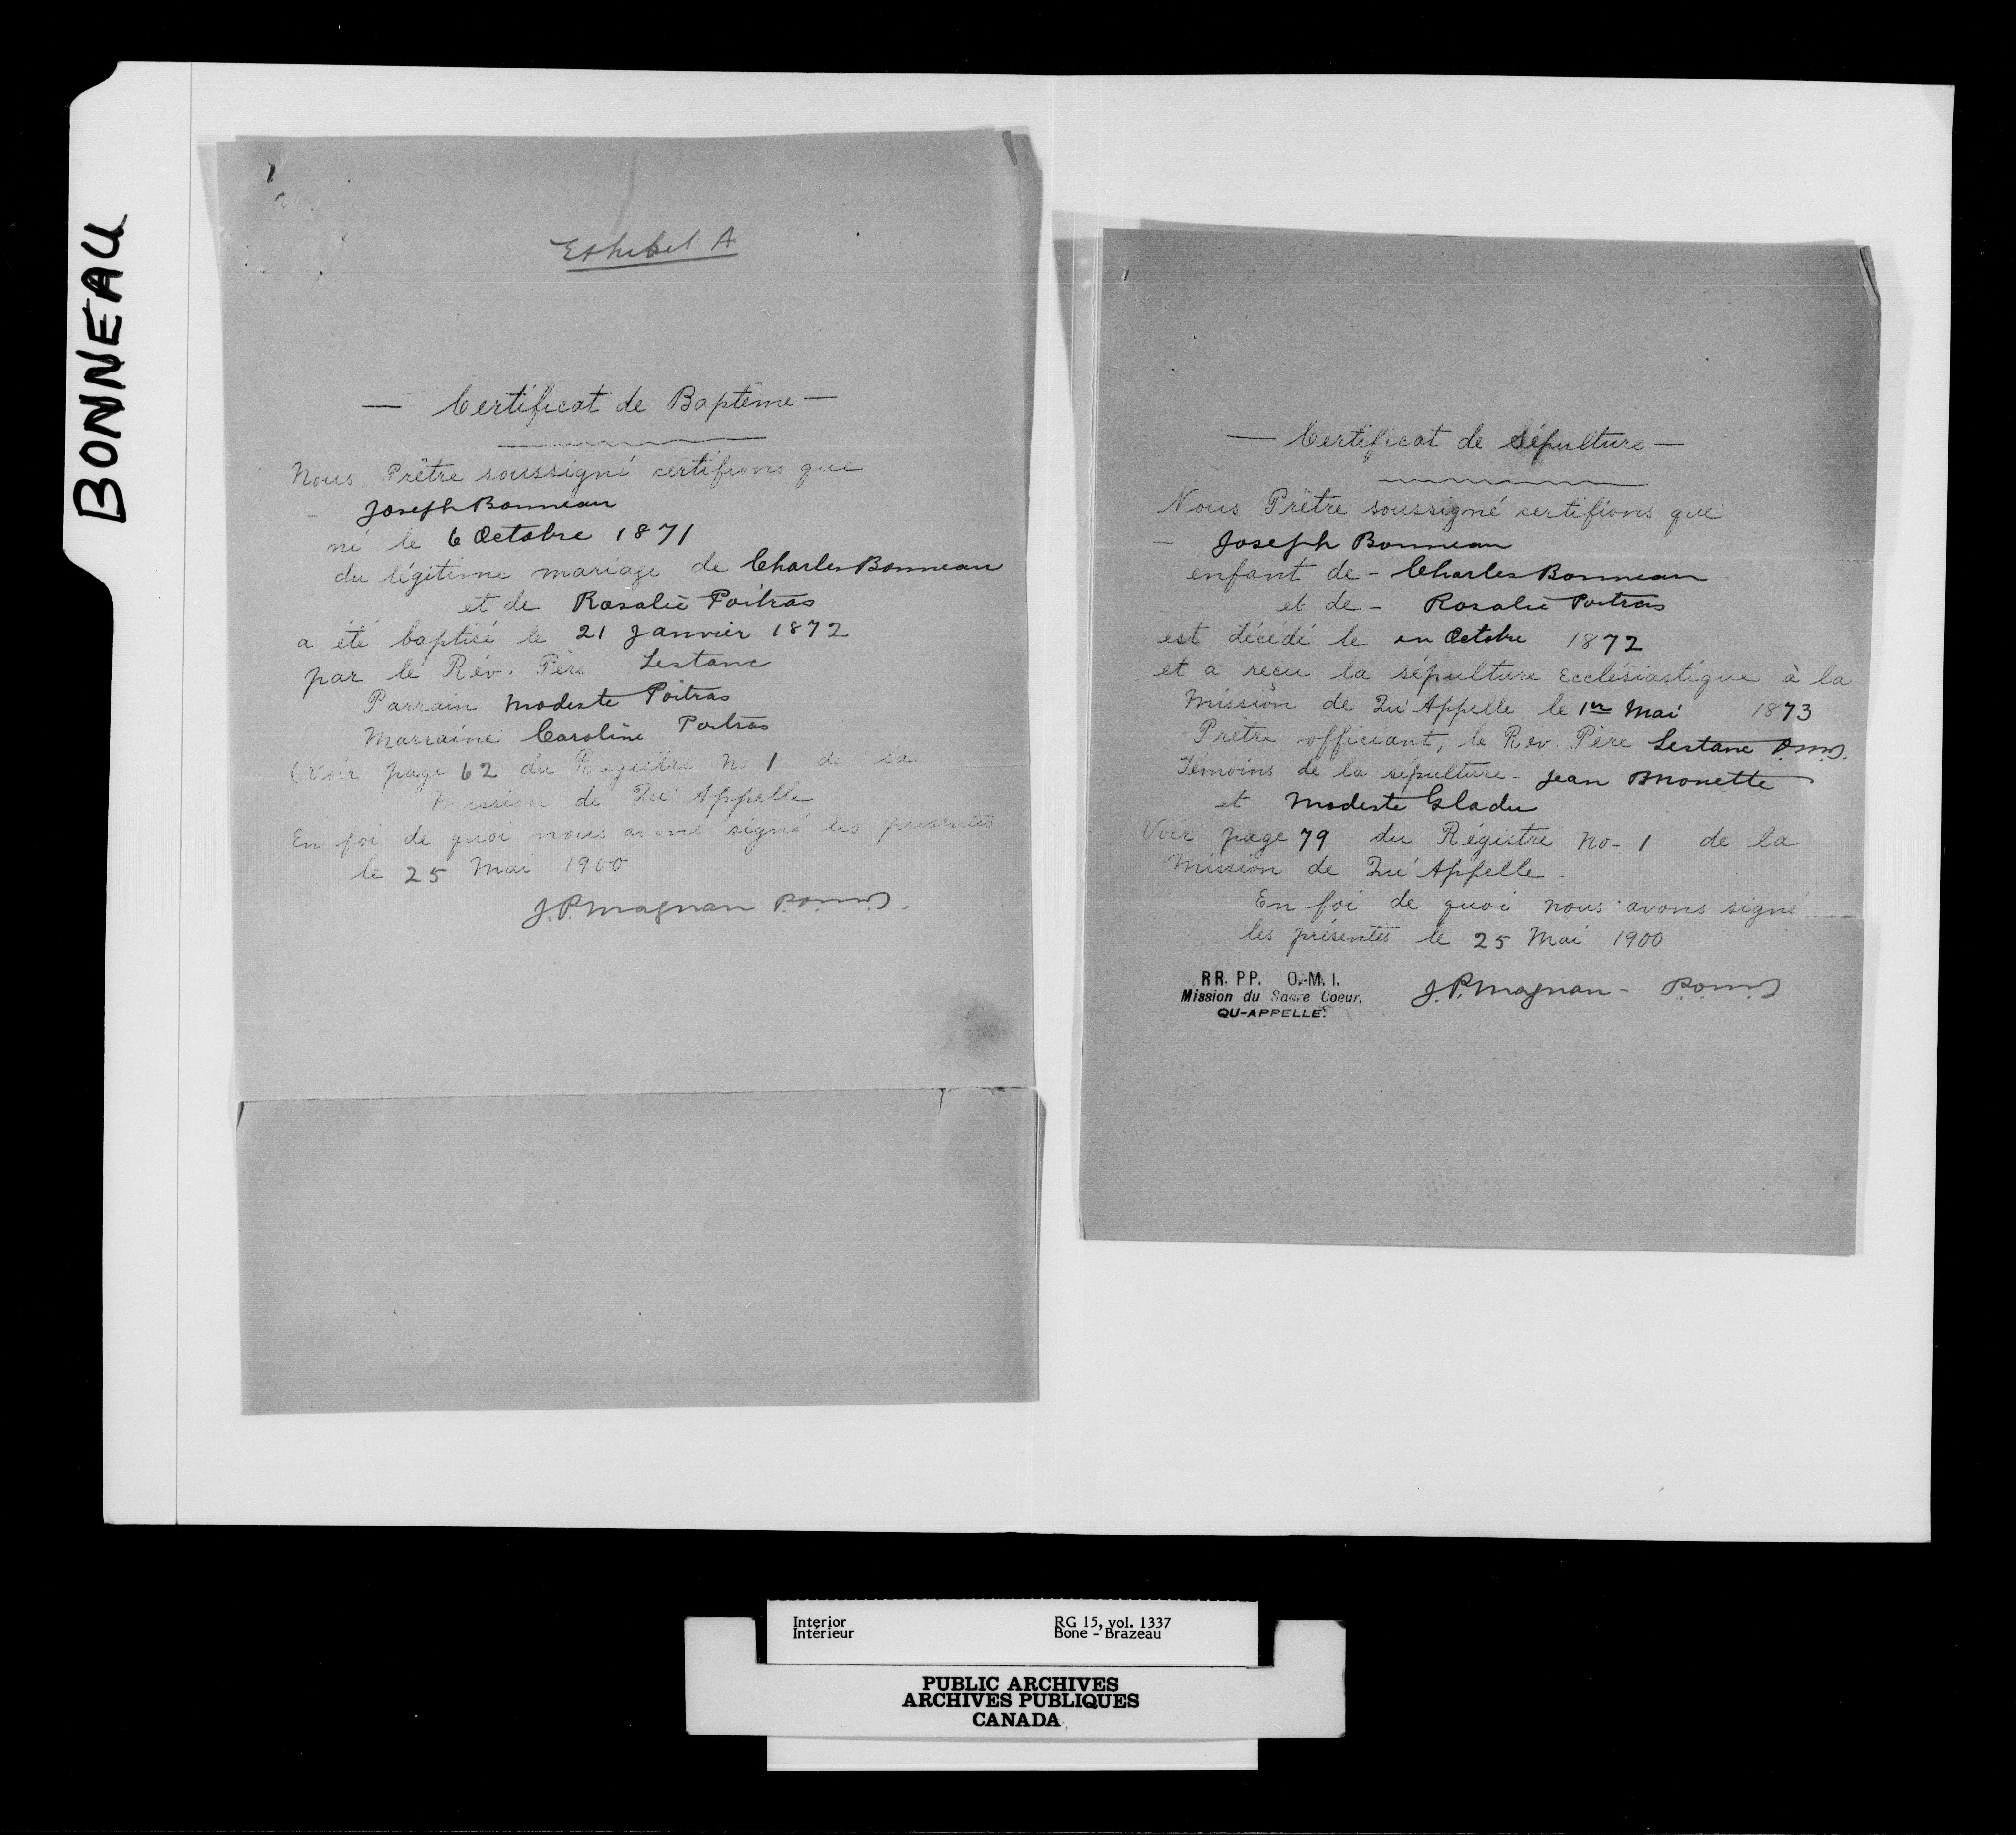 BONNEAU
Exhibit A
— Certificat de Baptême —
Nous, Prêtre soussigné certifions que
Joseph Bonneau
né le 6 Octobre 1871
du légitime mariage de Charles Bonneau
et de Rosalie Poitras
a été baptisé le 21 Janvier 1872
par le Rév. Père Lestanc
Parrain Modeste Poitras
Marraine Caroline Poitras
(Voir page 62 du Registre No 1 de la
Mission de Qu'Appelle
En foi de quoi nous avons signé les présentes
le 25 Mai 1900
J.P. Magnan P.O.M.I.
— Certificat de Sépulture —
Nous Prêtre soussigné certifions que
— Joseph Bonneau
enfant de - Charles Bonneau
et de - Rosalie Poitras
est décédé le en Octobre 1872
et a reçu la sépulture Ecclésiastique à la
Mission de Qu'Appelle le 1er Mai 1873
Prêtre officiant, le Rev. Père Lestanc O.M.I.
Témoins de la sépulture - Jean Monette
et Modeste Gladu
Voir page 79 du Régistre No - 1 de la
Mission de Qu'Appelle -
En foi de quoi nous avons signé
les présentes le 25 Mai 1900
RR. PP. O.M.I.
Mission du Sacre Coeur.
QU-APPELLE.
J.P. Magnan - P.O.M.I.
Interior
Intérieur
RG 15, vol. 1337
Bone - Brazeau
PUBLIC ARCHIVES
ARCHIVES PUBLIQUES
CANADA